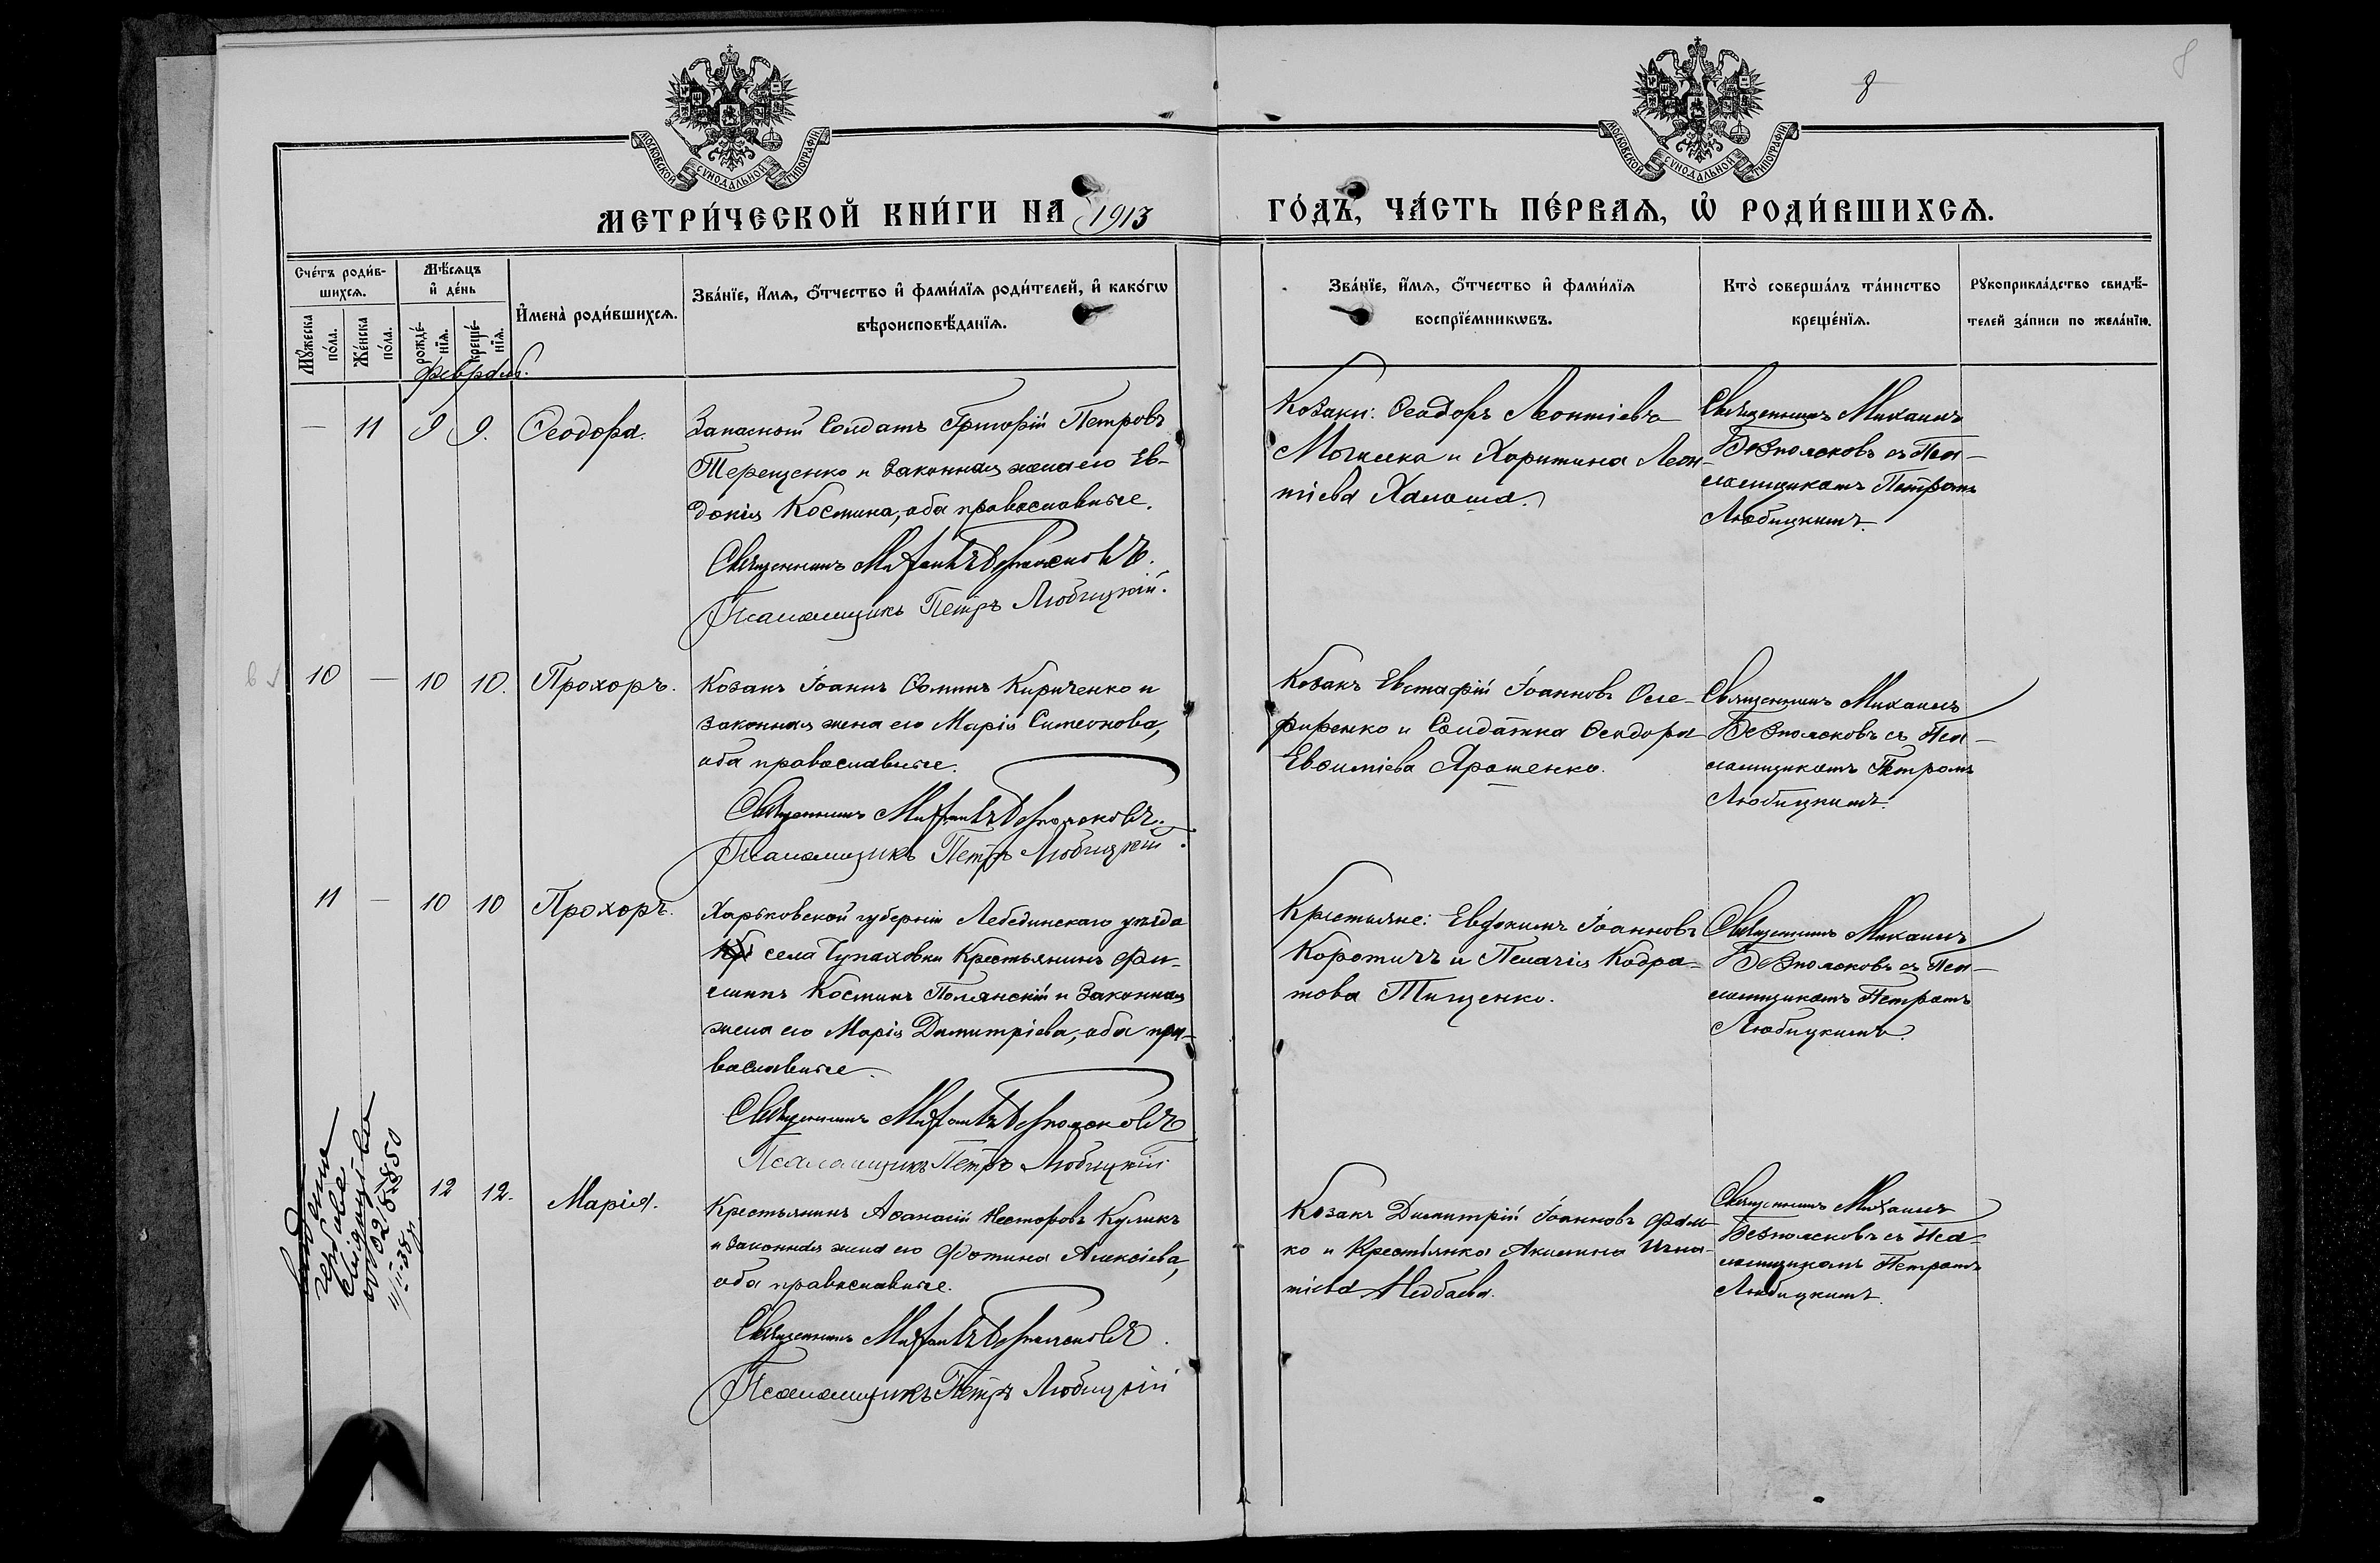 8
8
МОСКОВСКОЙ СѴНОДАЛЬНОЙ ТИПОГРАФІИ
МОСКОВСКОЙ СѴНОДАЛЬНОЙ ТИПОГРАФІИ
МЕТРИ́ЧЕСКОЙ КНИ́ГИ НА 1913
ГО́ДЪ, ЧА́СТЬ ПЕ́РВАЯ, Ѡ РОДИ́ВШИХСЯ.
Сче́тъ роди́в-
шихся.
Мѣ́сяцъ
и де́нь
Мꙋ́жеска
по́ла.
Же́нска
по́ла.
рожде́-
нїя.
креще́-
нїя.
Имена̀ роди́вшихся.
Зва́нїе, и́мя, ѻ́тчество и фами́лїя роди́телей, и како́гѡ
вѣроисповѣ́данїя.
Зва́нїе, и́мя, ѻ́тчество и фами́лїя
воспрїе́мникѡвъ.
Кто̀ соверша́лъ та́инство
креще́нїя.
Рꙋкоприкла́дство свидѣ́-
телей за́писи по жела́нїю.
Февраль.
— 11 9 9. Ѳеодора.
Запасной Солдатъ Григорій Петровъ
Терещенко и законная жена его Ев-
докія Костина, оба православные.
Священникъ Михаилъ Безполсковъ.
Псаломщикъ Петръ Любицкій.
Козаки: Ѳеодоръ Леонтіевъ
Могилка и Харитина Леон-
тіева Халоша.
Священникъ Михаилъ
Безполсковъ съ Пса-
ломщикомъ Петромъ
Любицкимъ.
10 — 10 10. Прохоръ.
Козакъ Іоаннъ Ѳоминъ Кириченко и
законная жена его Марія Симеонова,
оба православные.
Священникъ Михаилъ Безполсковъ.
Псаломщикъ Петръ Любицкій.
Козакъ Евстафій Іоанновъ Оле-
фиренко и Солдатка Ѳеодора
Евѳиміева Ярошенко.
Священникъ Михаилъ
Безполсковъ съ Пса-
ломщикомъ Петромъ
Любицкимъ.
11 — 10 10 Прохоръ.
Харьковской губерніи Лебединскаго уѣзда
села Чупаховки Крестьянинъ Фи-
липпъ Костинъ Полянскій и законная
жена его Марія Димитріева, оба пра-
вославные.
Священникъ Михаилъ Безполсковъ
Псаломщикъ Петръ Любицкій
Крестьяне: Евдокимъ Іоанновъ
Коротичъ и Пелагія Кодра-
това Тищенко.
Священникъ Михаилъ
Безполсковъ съ Пса-
ломщикомъ Петромъ
Любицкимъ.
12 12. Марія.
Крестьянинъ Аѳанасій Несторовъ Куликъ
и законная жена его Фотина Алексіева,
оба православные.
Священникъ Михаилъ Безполсковъ.
Псаломщикъ Петръ Любицкій
Козакъ Димитрій Іоанновъ
ко и Крестьянка Акилина Игна-
тіева Недбаева.
Священникъ Михаилъ
Безполсковъ съ Пса-
ломщикомъ Петромъ
Любицкимъ.